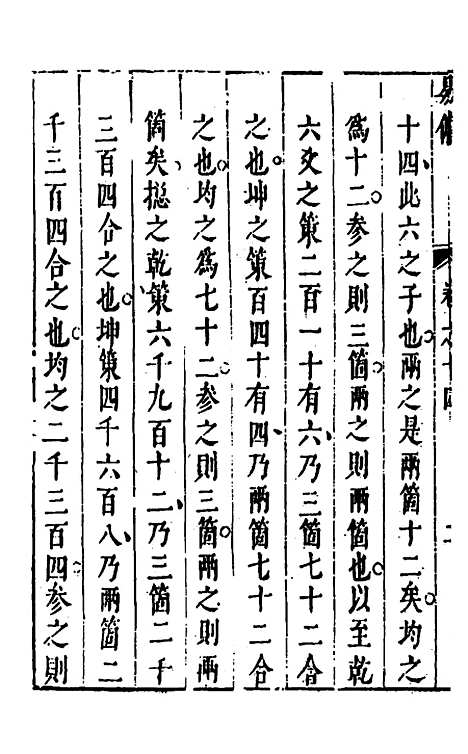 卷之十四
十四此六之子也兩之是兩箇十二矣均之
爲十二参之則三箇兩之則兩箇也以至乾
六爻之策二百一十有六乃三箇七十二合
之也坤之策百四十有四乃兩箇七十二合
之也均之爲七十二参之則三箇兩之則兩
箇矣揔之乾策六千九百十二乃三箇二千
三百四合之也坤策四千六百八乃兩箇二
千三百四合之也均之二千三百四参之則